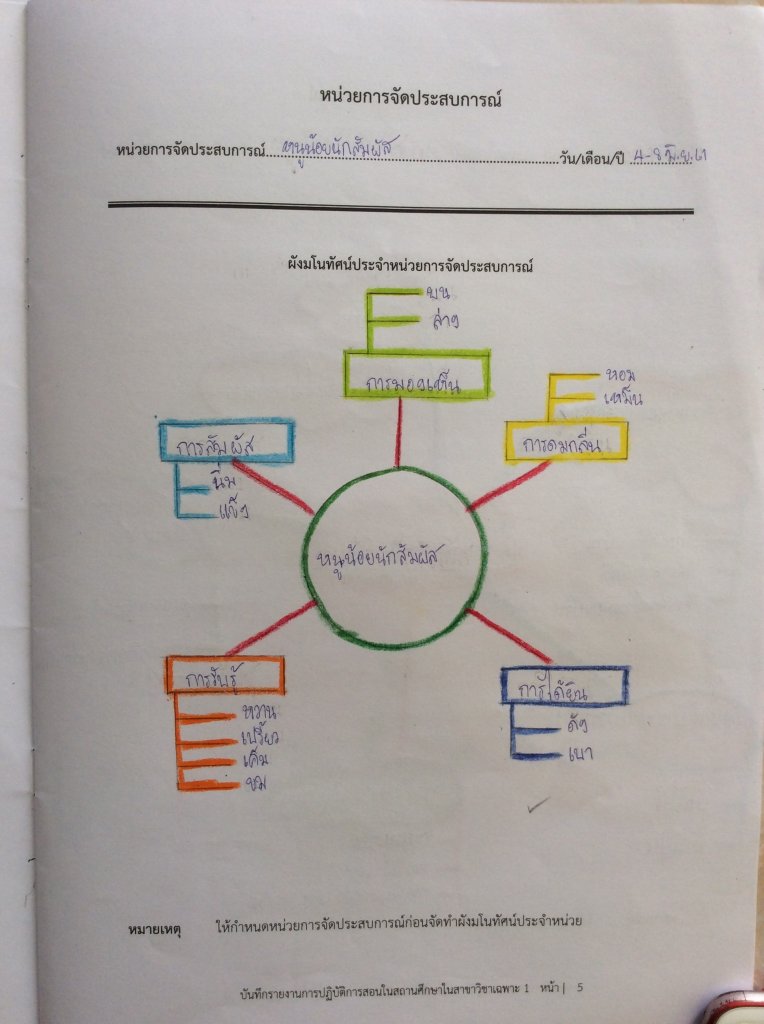 หน่วยการจัดประสบการณ์
หน่วยการจัดประสบการณ์ หนูน้อยนักสัมผัส วัน/เดือน/ปี 4-8 มิ.ย. 61
ผังมโนทัศน์ประจำหน่วยการจัดประสบการณ์
บน
ล่าง
การมองเห็น
หอม
เหม็น
การดมกลิ่น
การสัมผัส
นิ่ม
แข็ง
หนูน้อยนักสัมผัส
การรับรู้
หวาน
เปรี้ยว
เค็ม
ขม
การได้ยิน
ดัง
เบา
หมายเหตุ ให้กำหนดหน่วยการจัดประสบการณ์ก่อนจัดทำผังมโนทัศน์ประจำหน่วย
บันทึกรายงานการปฏิบัติการสอนในสถานศึกษาในสาขาวิชาเฉพาะ 1 หน้า | 5